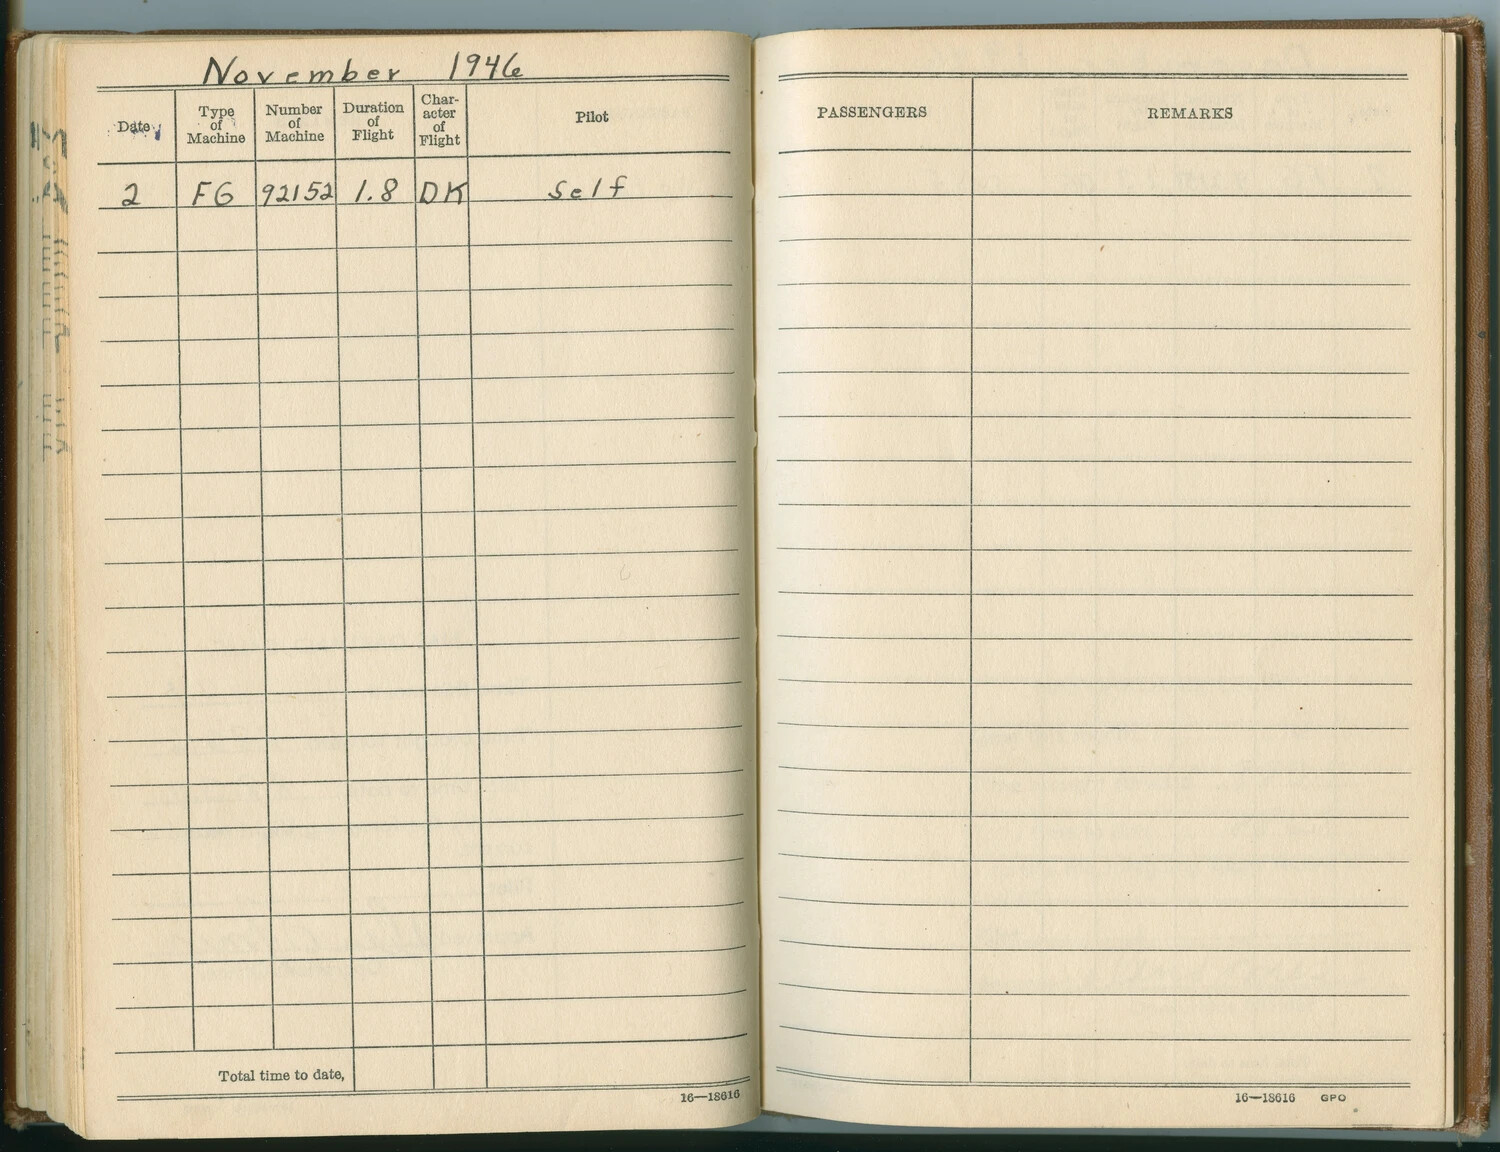 November 1946
Date
Type of Machine
Number of Machine
Duration of Flight
Char-acter of Flight
Pilot
PASSENGERS
REMARKS
2 FG 92152 1.8 DK Self
Total time to date,
16—18616
16—18616 GPO